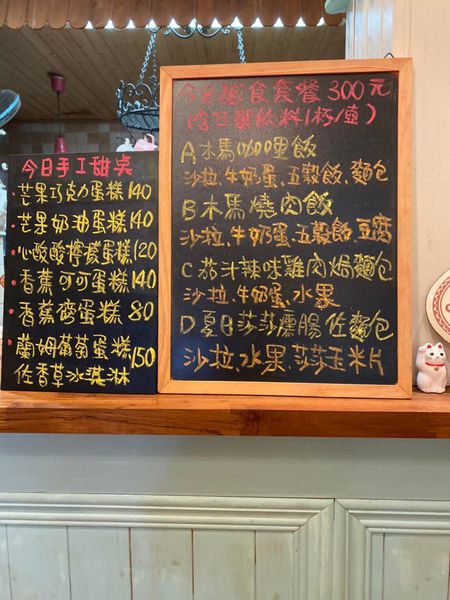 今日手工甜桌
芒果巧克力蛋糕140
芒果奶油蛋糕140
心酸酸檸檬蛋糕120
香蕉可可蛋糕140
香蕉蛋糕 80
蘭姆葡萄蛋糕
佐香草冰淇淋 150
輕食套餐 300元
飲料1杯/壺)
A木馬咖哩飯
沙拉、牛奶蛋、五穀飯、麵包
B木馬燒肉飯
沙拉、牛奶蛋、五穀飯、豆腐
C茄汁辣味雞肉焗麵包
沙拉、牛奶蛋、水果
D夏日莎莎燻腸佐麵包
沙拉、水果、莎莎玉米片